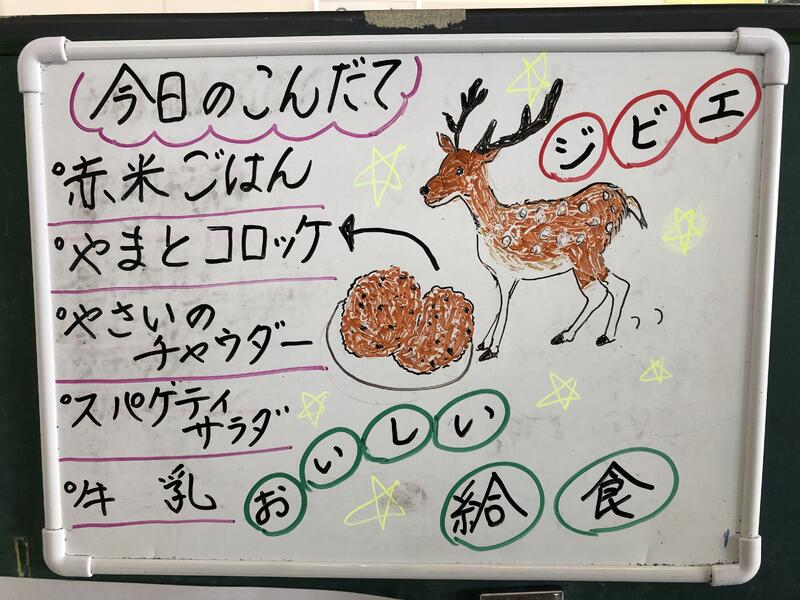 今日のこんだて
ジビエ
°赤米ごはん
°やまとコロッケ
°やさいの
チャウダー
°スパゲティ
サラダ
°牛乳
おいしい
給食